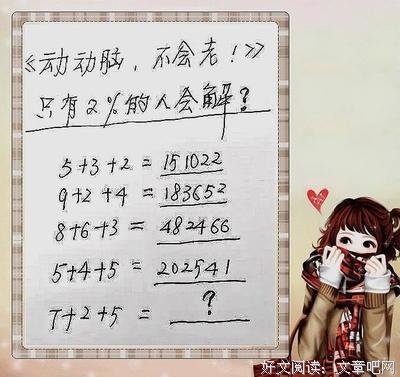 《动动脑，不会老！》
只有2%的人会解？
5+3+2=151022
9+2+4=183652
8+6+3=482466
5+4+5=202541
7+2+5=?
好文阅读：文章吧网